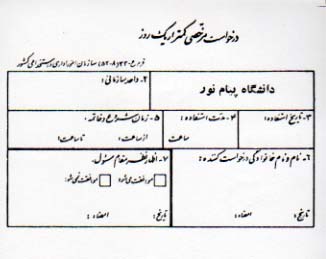 درخواست مرخصی کمتر از یک روز
فرم ع-۳۳ (۸-۵۲) سازمان امور اداری و استخدامی کشور
دانشگاه پیام نور
۲- واحد سازمانی:
۳- تاریخ استفاده:
۴- مدت استفاده:
ساعت
۵- زمان شروع و خاتمه:
از ساعت:
تا ساعت:
۶- نام و نام خانوادگی درخواست کننده:
تاریخ:
امضاء:
۷- اظهار نظر مقام مسئول:
موافقت می شود
موافقت نمی شود
تاریخ:
امضاء: